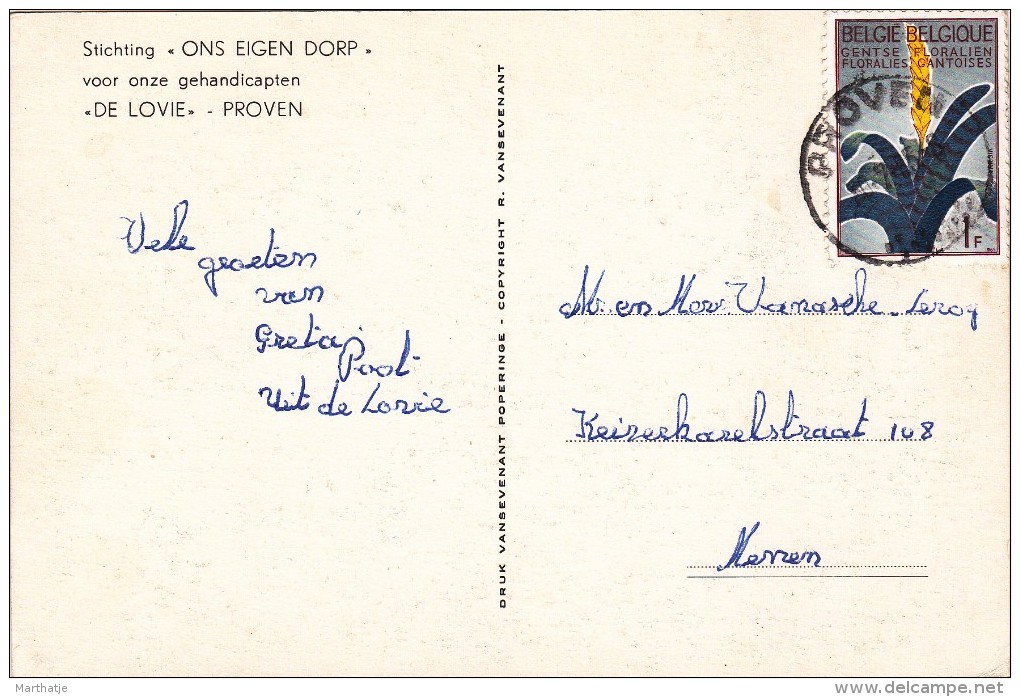 Stichting « ONS EIGEN DORP »
voor onze gehandicapten
«DE LOVIE» - PROVEN
Vele
groeten
van
Greta
Poot
Uit de Lovie
DRUK VANSEVENANT POPERINGE - COPYRIGHT R. VANSEVENANT
BELGIE BELGIQUE
GENTSE FLORALIEN
FLORALIES GANTOISES
1F
PROVEN
M. en Mev Vanasche-Leroy
Keizerkarelstraat 108
Menen
Marthatje
www.delcampe.net